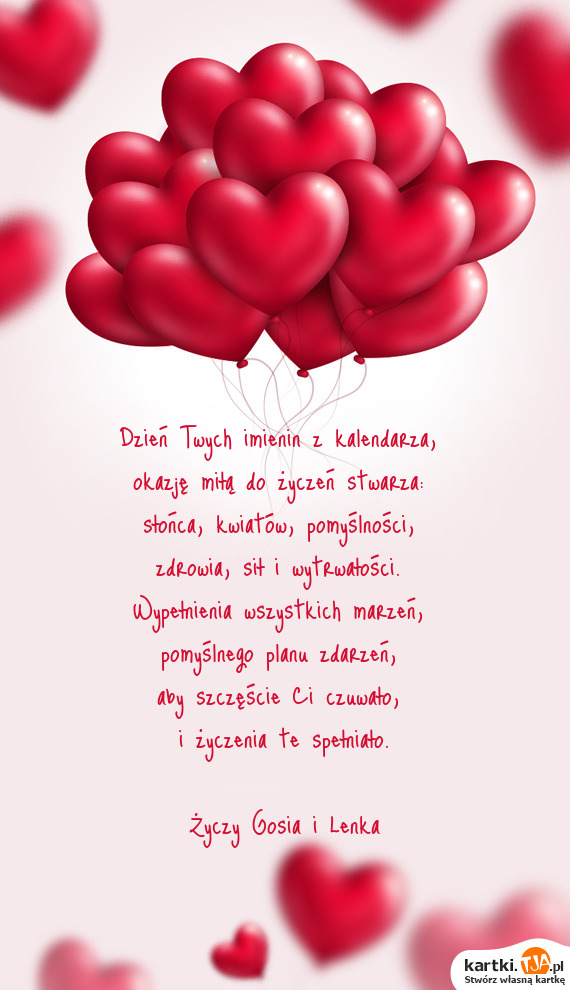 Dzień Twych imienin z kalendarza,
okazję miłą do życzeń stwarza:
słońca, kwiatów, pomyślności,
zdrowia, sił i wytrwałości.
Wypełnienia wszystkich marzeń,
pomyślnego planu zdarzeń,
aby szczęście Ci czuwało,
i życzenia te spełniało.
Życzy Gosia i Lenka
kartki.TJA.pl
Stwórz własną kartkę